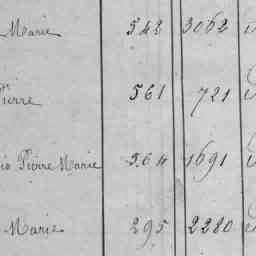 Marie 542 3062
Pierre 561 721
Pierre Marie 564 1691
Marie 295 2280